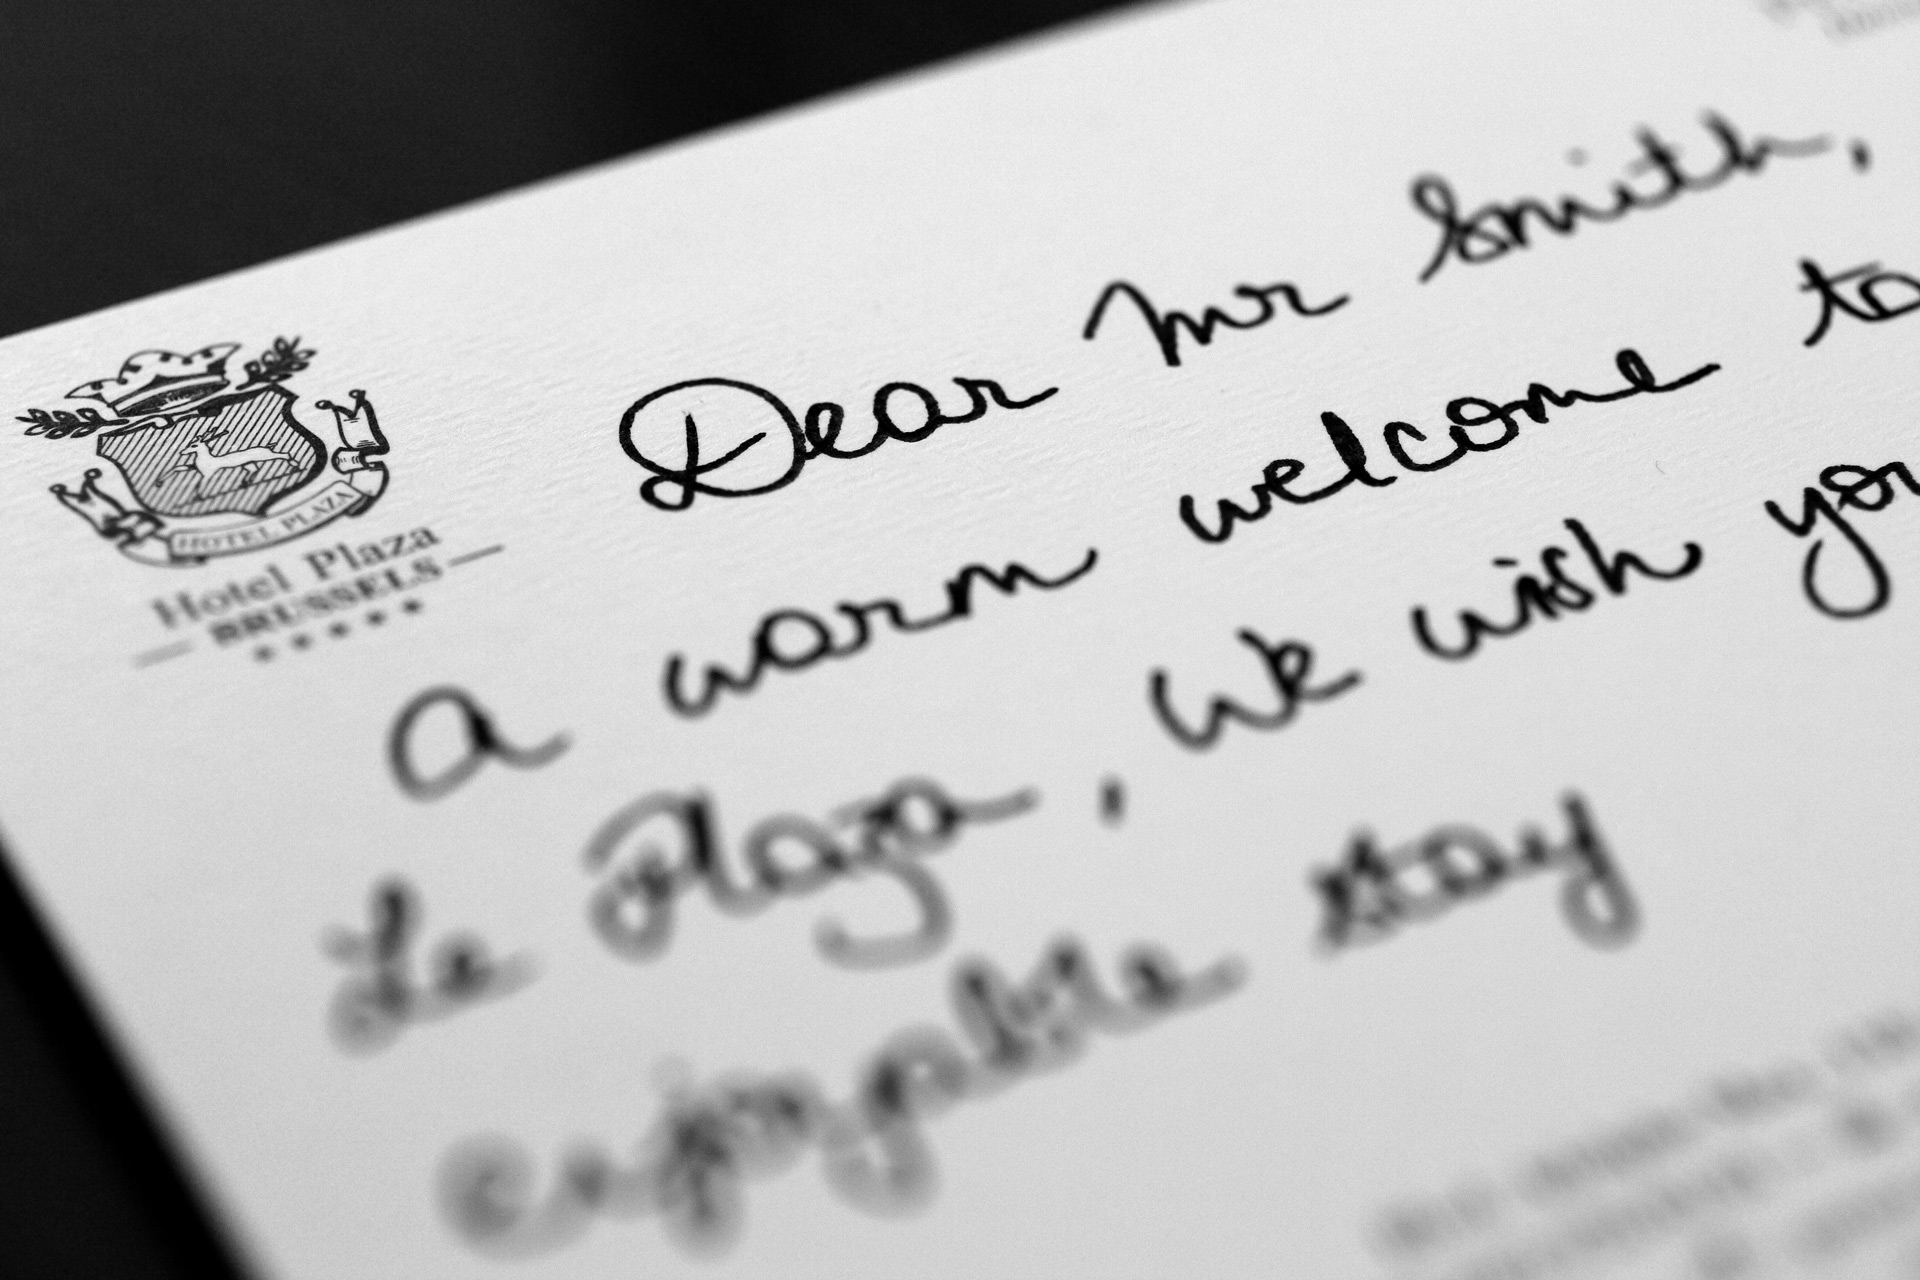 HOTEL PLAZA
Hotel Plaza
BRUSSELS
Dear Mr Smith,
a warm welcome to
Le Plaza, We wish you
enjoyable stay